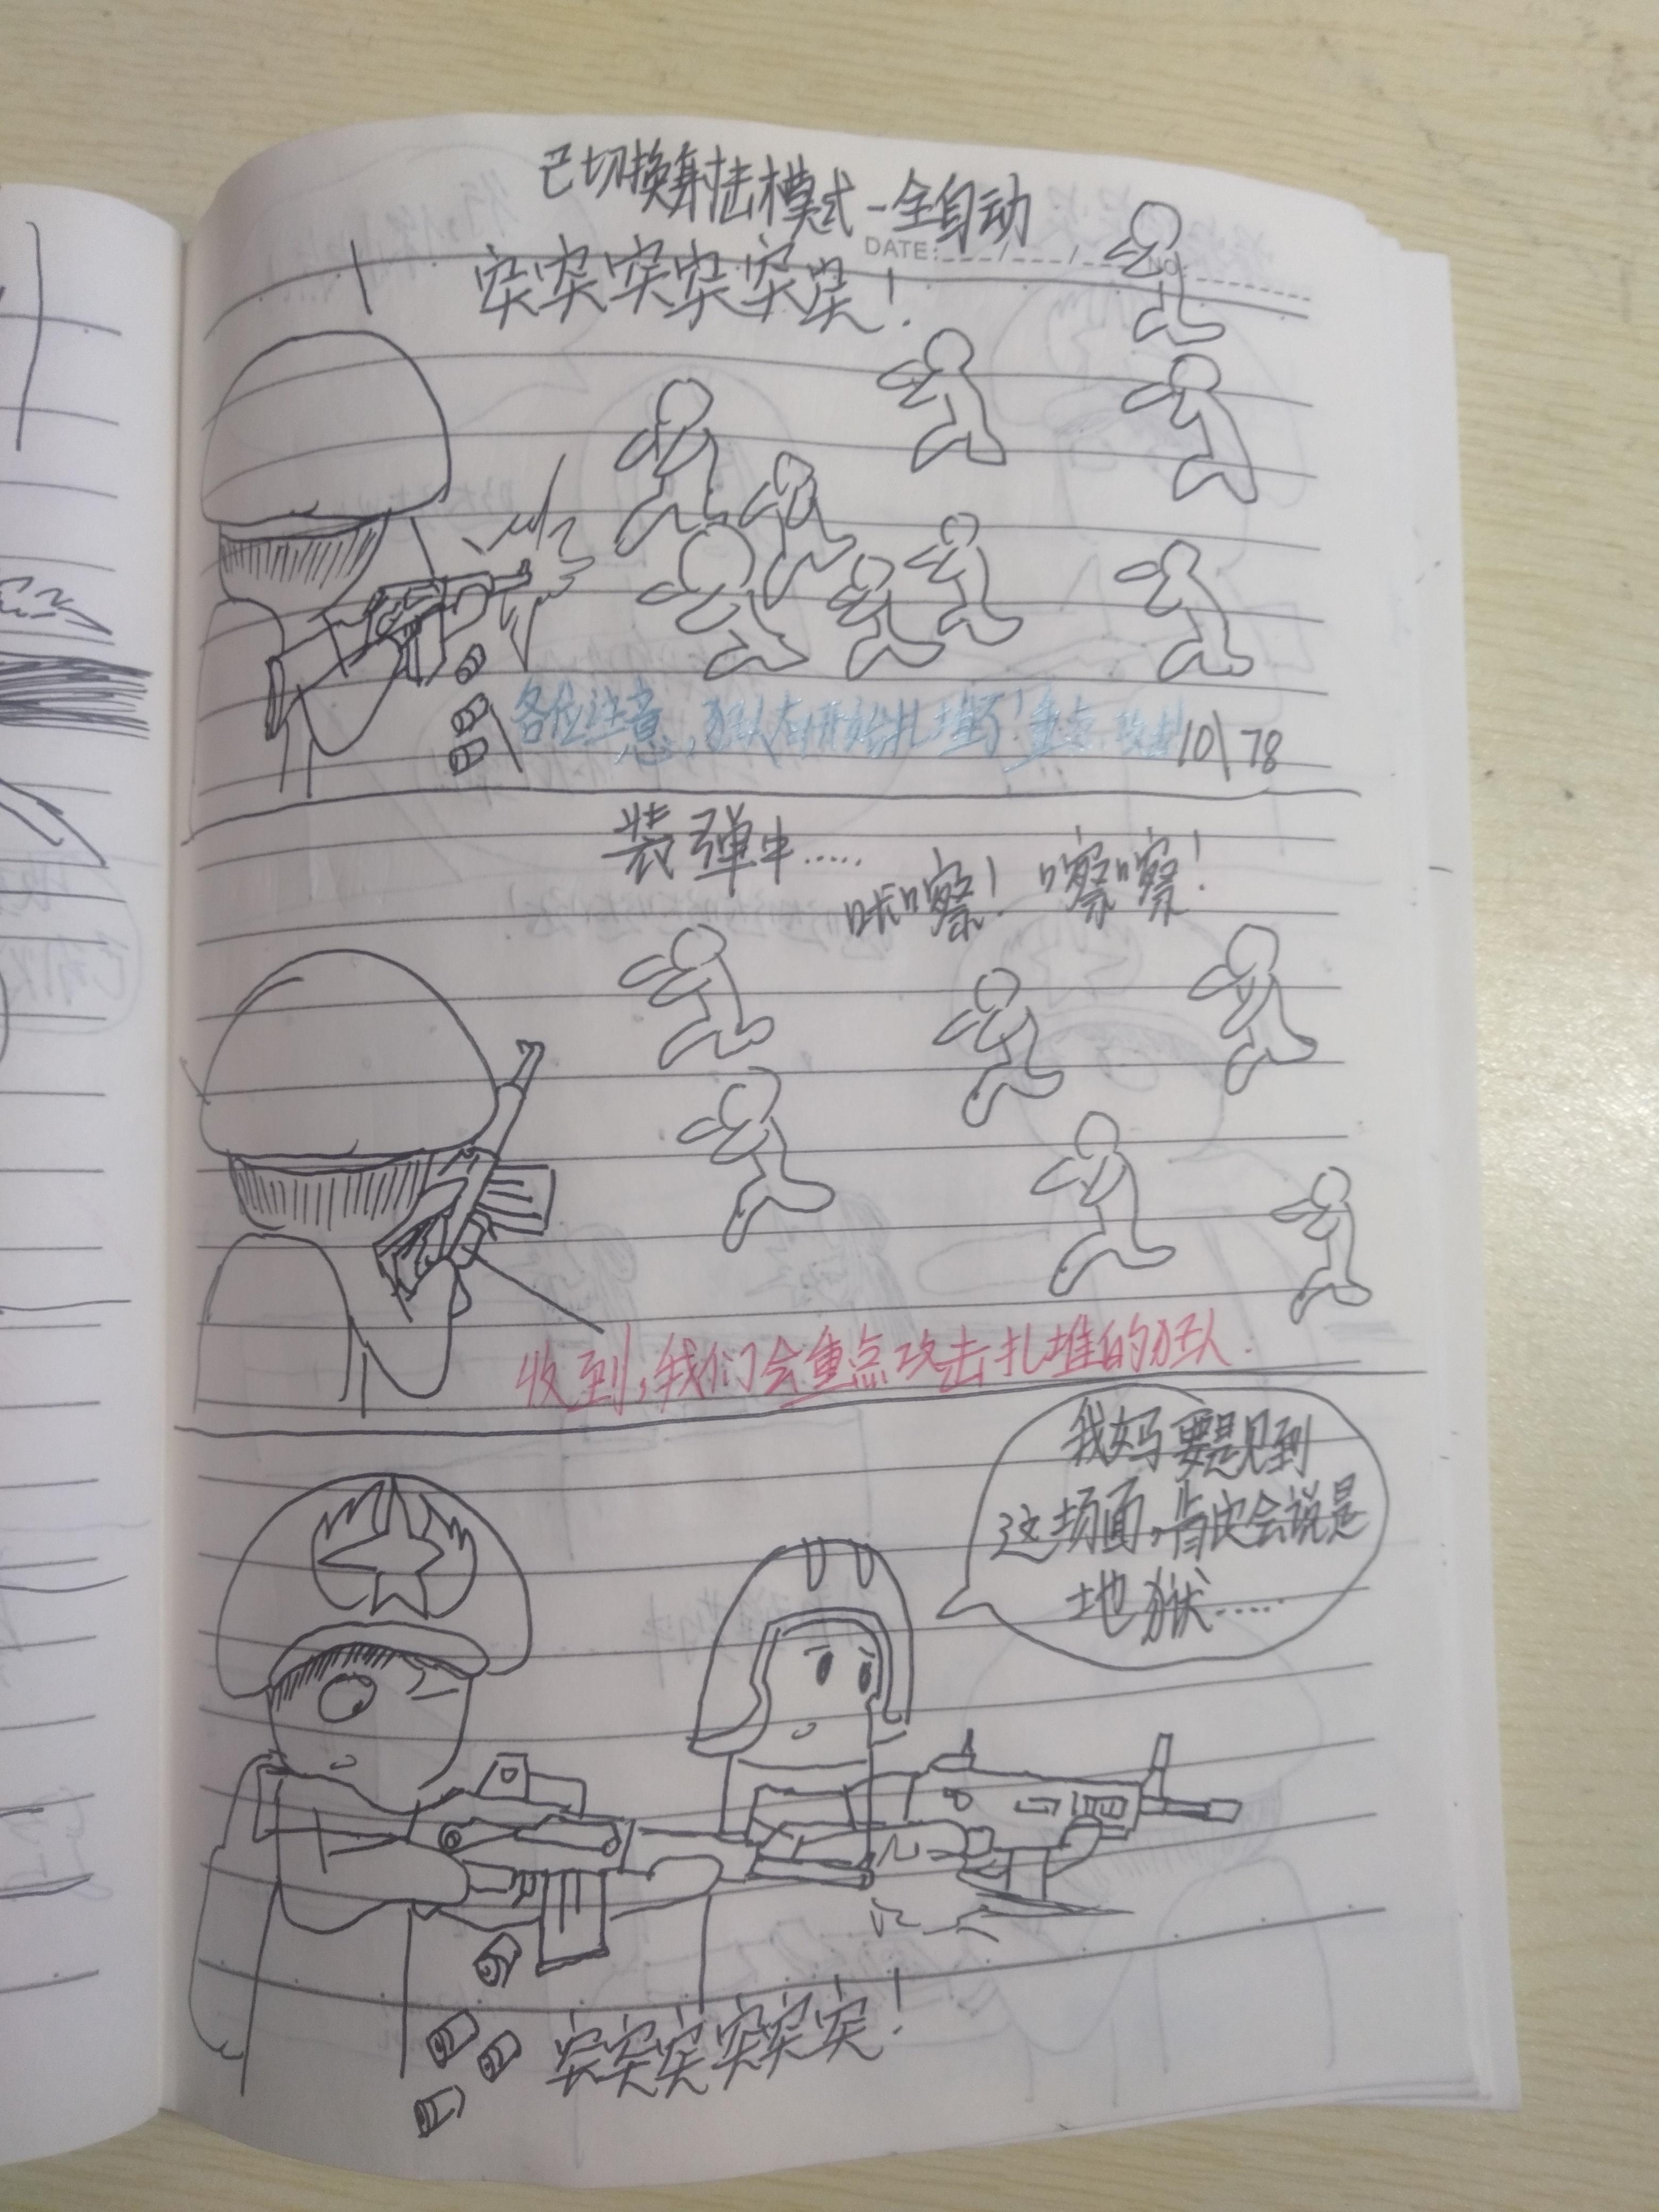 已切换射击模式-全自动
DATE: / / NO:
突突突突突突!
各位注意,狂队友开始扎堆了!重点攻击
10\78
装弹中.....
咔嚓!嚓嚓!
收到,我们会重点攻击扎堆的狂队.
我妈要是见到
这场面,肯定会说是
地狱.....
突突突突突突!